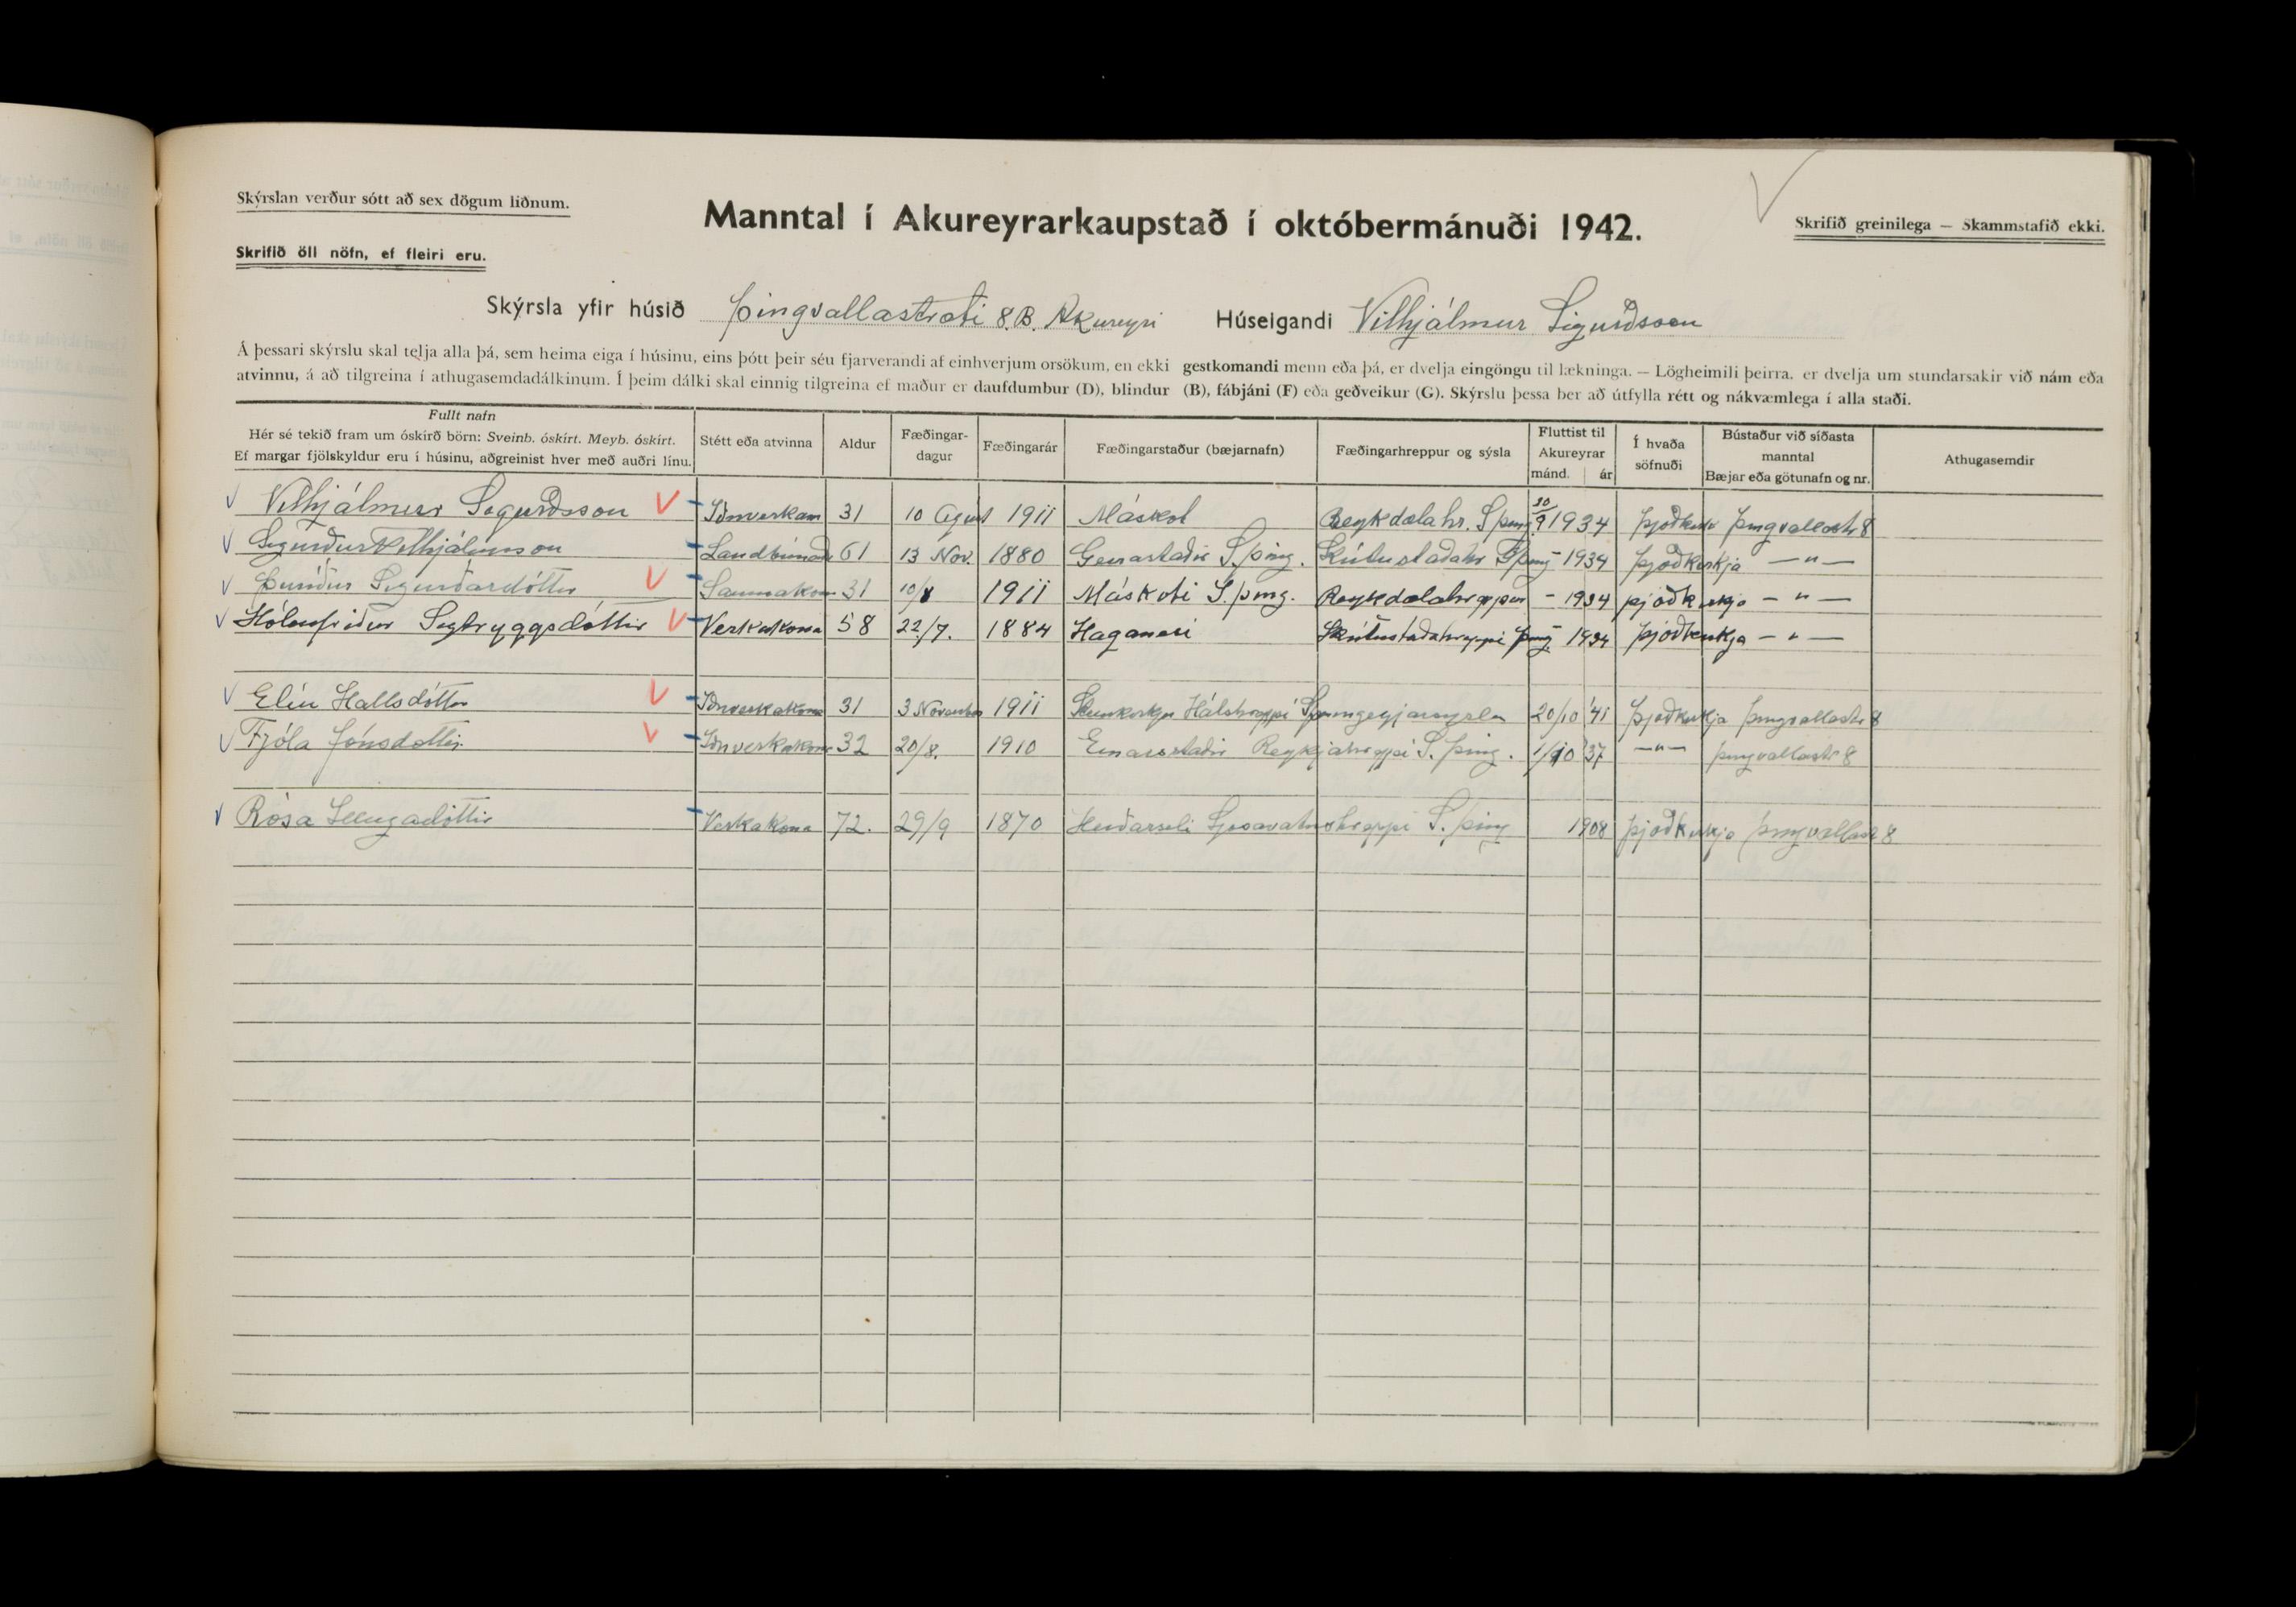 Skýrslan verður sótt að sex dögum liðnum.
Skrifið öll nöfn, ef fleiri eru.
Manntal í Akureyrarkaupstað í októbermánuði 1942.
Skrifið greinilega — Skammstafið ekki.
Skýrsla yfir húsið Þingvallastræti 8.B. Akureyri Húseigandi Vilhjálmur Sigurðsson
Á þessari skýrslu skal telja alla þá, sem heima eiga í húsinu, eins þótt þeir séu fjarverandi af einhverjum orsökum, en ekki gestkomandi menn eða þá, er dvelja eingöngu til lækninga. — Lögheimili þeirra, er dvelja um stundarsakir við nám eða
atvinnu, á að tilgreina í athugasemdadálkinum. Í þeim dálki skal einnig tilgreina ef maður er daufdumbur (D), blindur (B), fábjáni (F) eða geðveikur (G). Skýrslu þessa ber að útfylla rétt og nákvæmlega í alla staði.
Fullt nafn
Hér sé tekið fram um óskírð börn: Sveinb. óskírt. Meyb. óskírt.
Ef margar fjölskyldur eru í húsinu, aðgreinist hver með auðri línu.
Stétt eða atvinna
Aldur
Fæðingar-
dagur
Fæðingarár
Fæðingarstaður (bæjarnafn)
Fæðingarhreppur og sýsla
Fluttist til
Akureyrar
mánd. ár
Í hvaða
söfnuði
Bústaður við síðasta
manntal
Bæjar eða götunafn og nr.
Athugasemdir
Vilhjálmur Sigurðsson Iðnverkam 31 10 Agúst 1911 Máskot Reykdælahr. S þing 30/9 1934 Þjóðkirkja Þingvallastr 8
Sigurður Vilhjálmsson Landbúnað 61 13 Nov. 1880 S.þing. Skútustaðahr S þing – 1934 Þjóðkirkja — " —
Þuríður Sigurðardóttir Saumakona 31 10/8 1911 Máskoti S.þing. Reykdælahreppur – 1934 Þjóðkirkja — " —
Hólmfríður Sigtryggsdóttir Verkakona 58 22/7. 1884 Haganesi Skútustaðahreppi Þing – 1934 Þjóðkirkja — " —
Elín Hallsdóttir Iðnverkakona 31 3 November 1911 Hálshreppi S þingeyjarsýsla 20/10 '41 Þjóðkirkja Þingvallastr 8
Fjóla Jónsdóttir Iðnverkakona 32 20/8. 1910 Einarsstaðir Reykjahreppi S. Þing. 1/10 37 — " — Þingvallastr 8
Rósa Verkakona 72. 29/9 1870 Heiðarseli Ljósavatnshreppi S. Þing 1908 Þjóðkirkja Þingvallastr 8